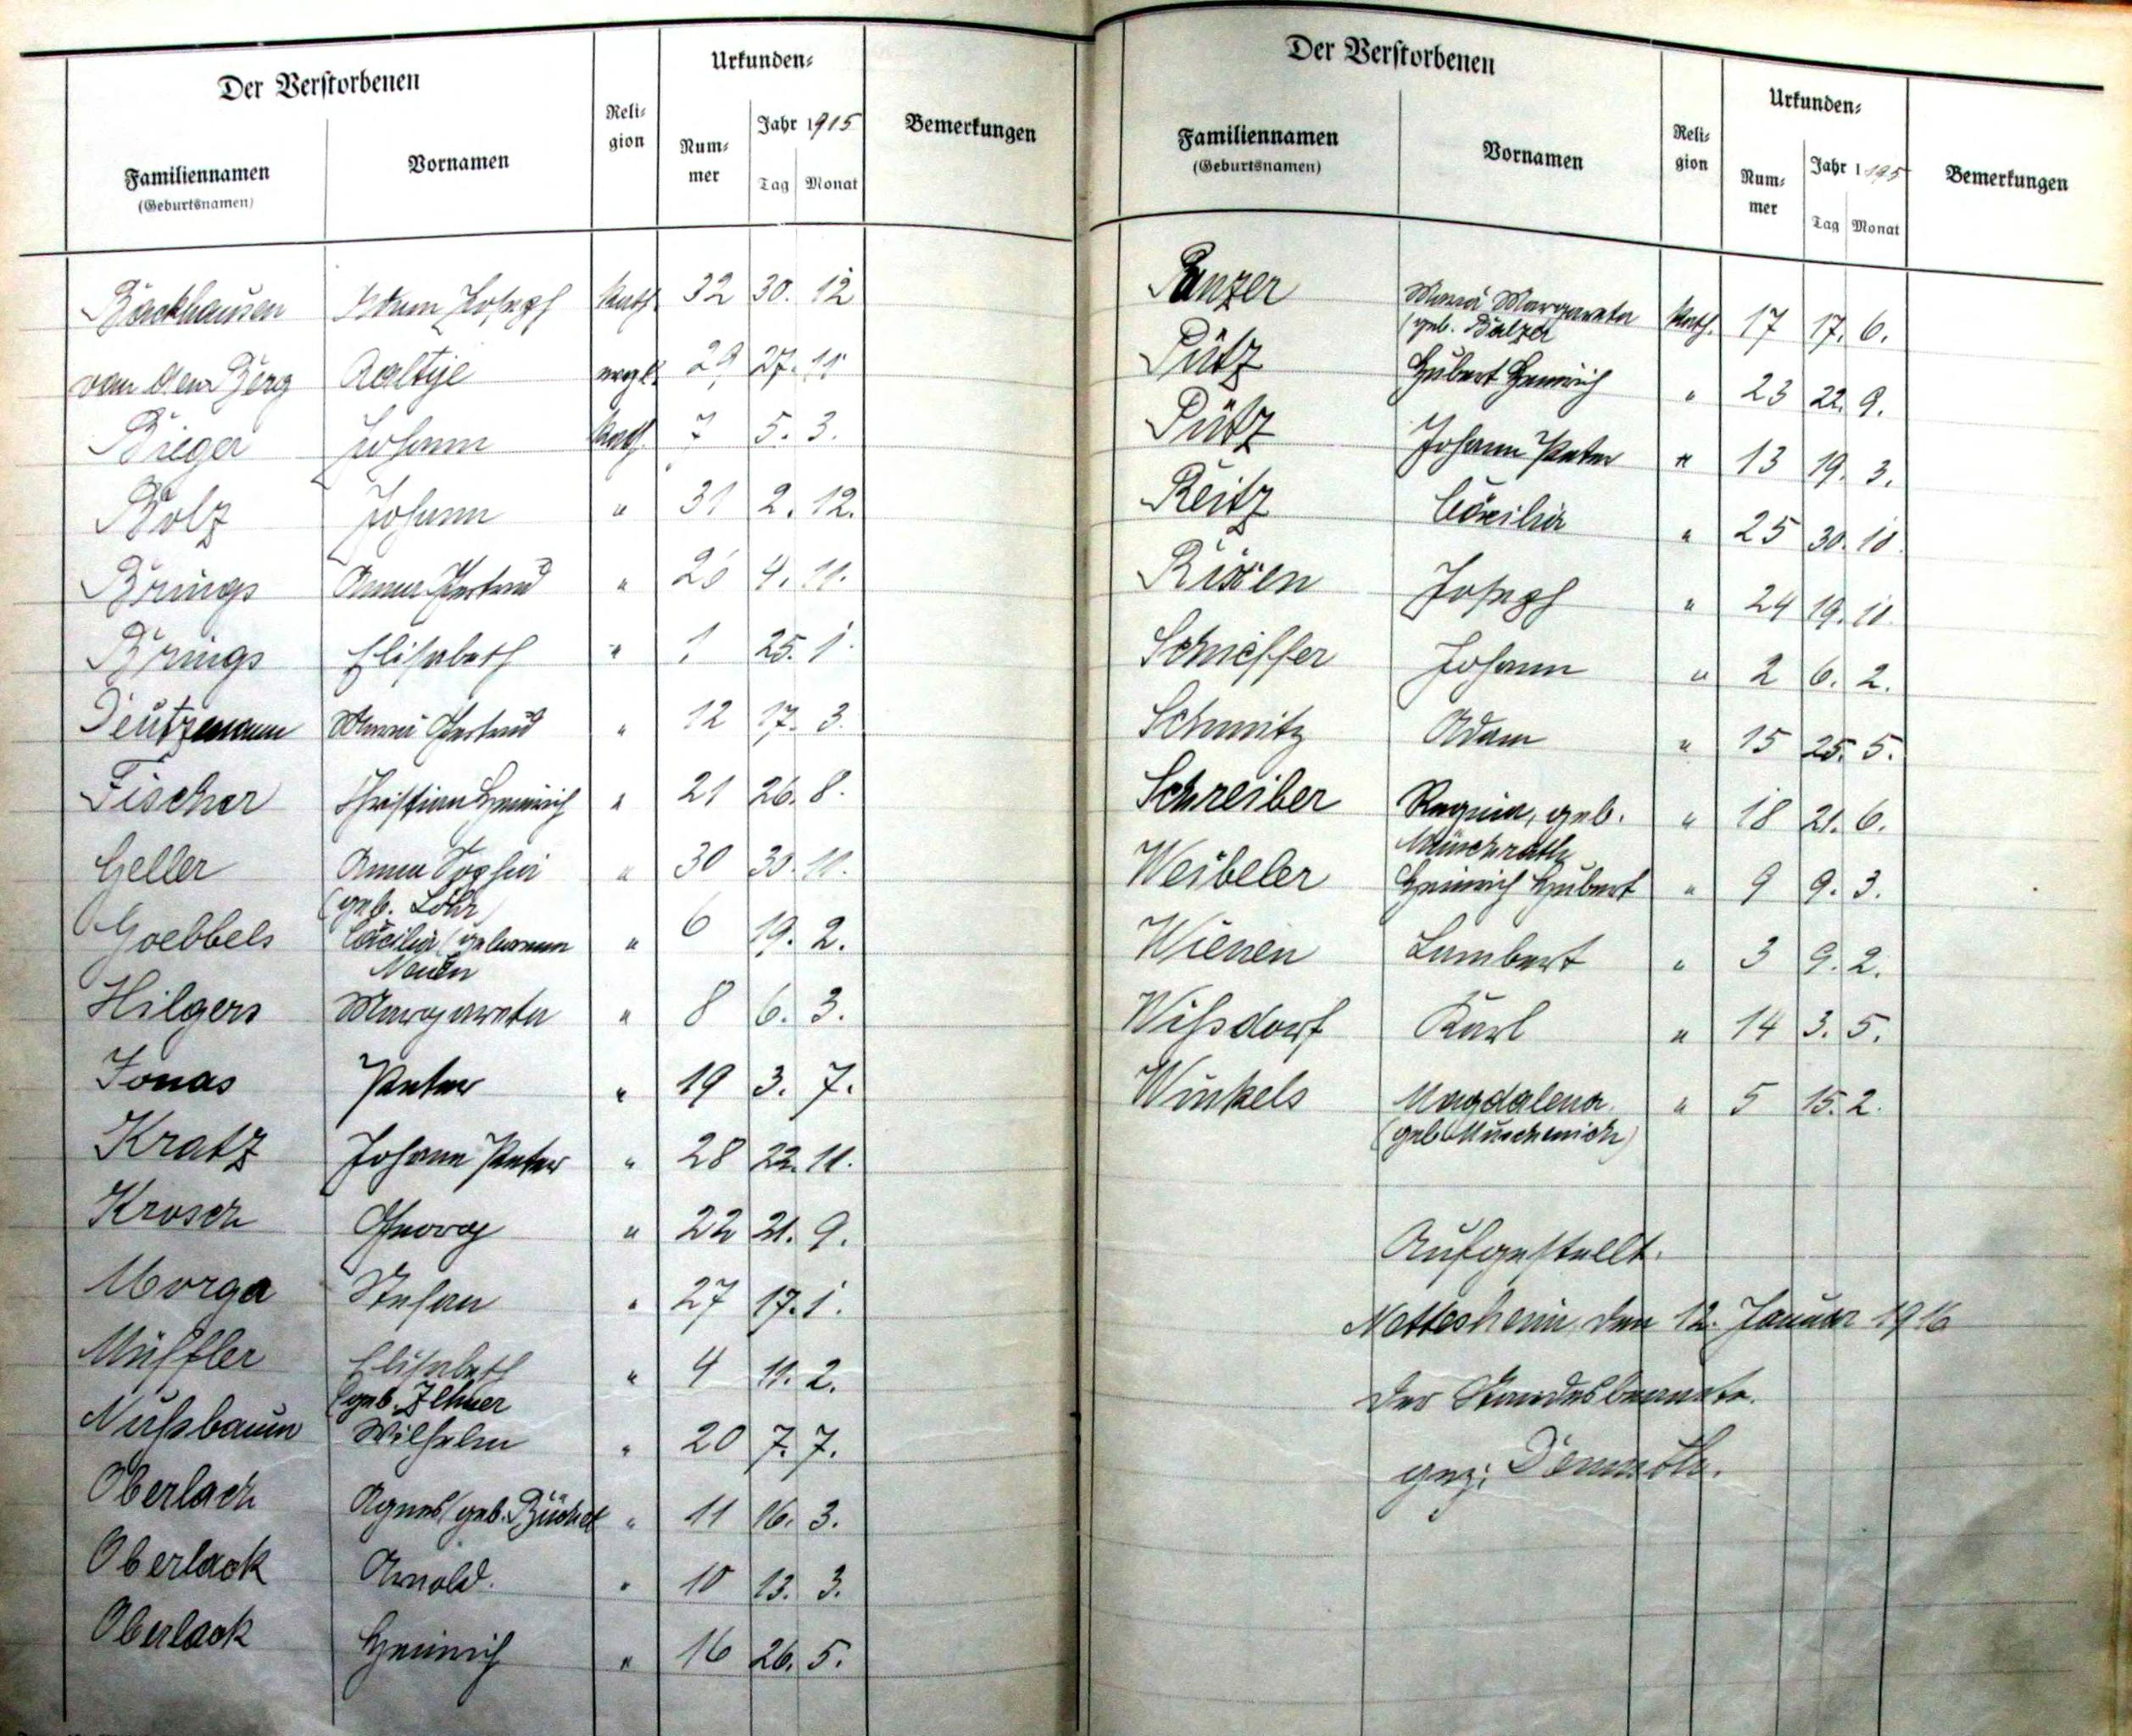 Der Verstorbenen
Urkunden-
Familiennamen
(Geburtsnamen)
Vornamen
Reli-
gion
Num-
mer
Jahr 1915
Tag Monat
Bemerkungen
Backhausen Adam Joseph kath. 32 30. 12
van den Berg Aaltje evgl. 29 27. 11
Bieger Johann kath. 7 5. 3.
Bolz Johann " 31 2. 12.
Brings Anna Gertrud " 26 4. 11.
Brings Elisabeth " 1 25. 1.
Deutzmann Maria Gertrud " 12 17. 3.
Fischer Christian Heinrich " 21 26. 8.
Geller Anna Sophia " 30 30. 11.
(geb. Löhr)
Goebbels Cäcilia (geborenen " 6 19. 2.
Neuen
Hilgers Margareta " 8 6. 3.
Jonas Peter " 19 3. 7.
Kratz Johann Peter " 28 22. 11.
Krosch Georg " 22 21. 9.
Morga Stefan " 27 17. 1.
Müffler Elisabeth " 4 11. 2.
(geb. Zelmer
Nußbaum Wilhelm " 20 7. 7.
Oberlach Agnes (geb. Büchel " 11 16. 3.
Oberlack Arnold. " 10 13. 3.
Oberlack Heinrich " 16 26. 5.
Der Verstorbenen
Urkunden-
Familiennamen
(Geburtsnamen)
Vornamen
Reli-
gion
Num-
mer
Jahr 1 195
Tag Monat
Bemerkungen
Panzer Maria Margareta kath. 17 17. 6.
(geb. Balzer
Pütz Hubert Heinrich " 23 22. 9.
Pütz Johann Peter " 13 19. 3.
Reitz Cäcilia " 25 30. 10.
Rixen Joseph " 24 19. 10.
Schieffer Johann " 2 6. 2.
Schmitz Adam " 15 25. 5.
Schreiber Regina, geb. " 18 21. 6.
Münchrath
Weibeler Heinrich Hubert " 9 9. 3.
Wienen Lambert " 3 9. 2.
Wißdorf Karl " 14 3. 5.
Winkels Magdalena " 5 15. 2.
(geb. Muschenich)
Aufgestellt.
Nettesheim, den 12. Januar 1916
Der Standesbeamte.
gez: